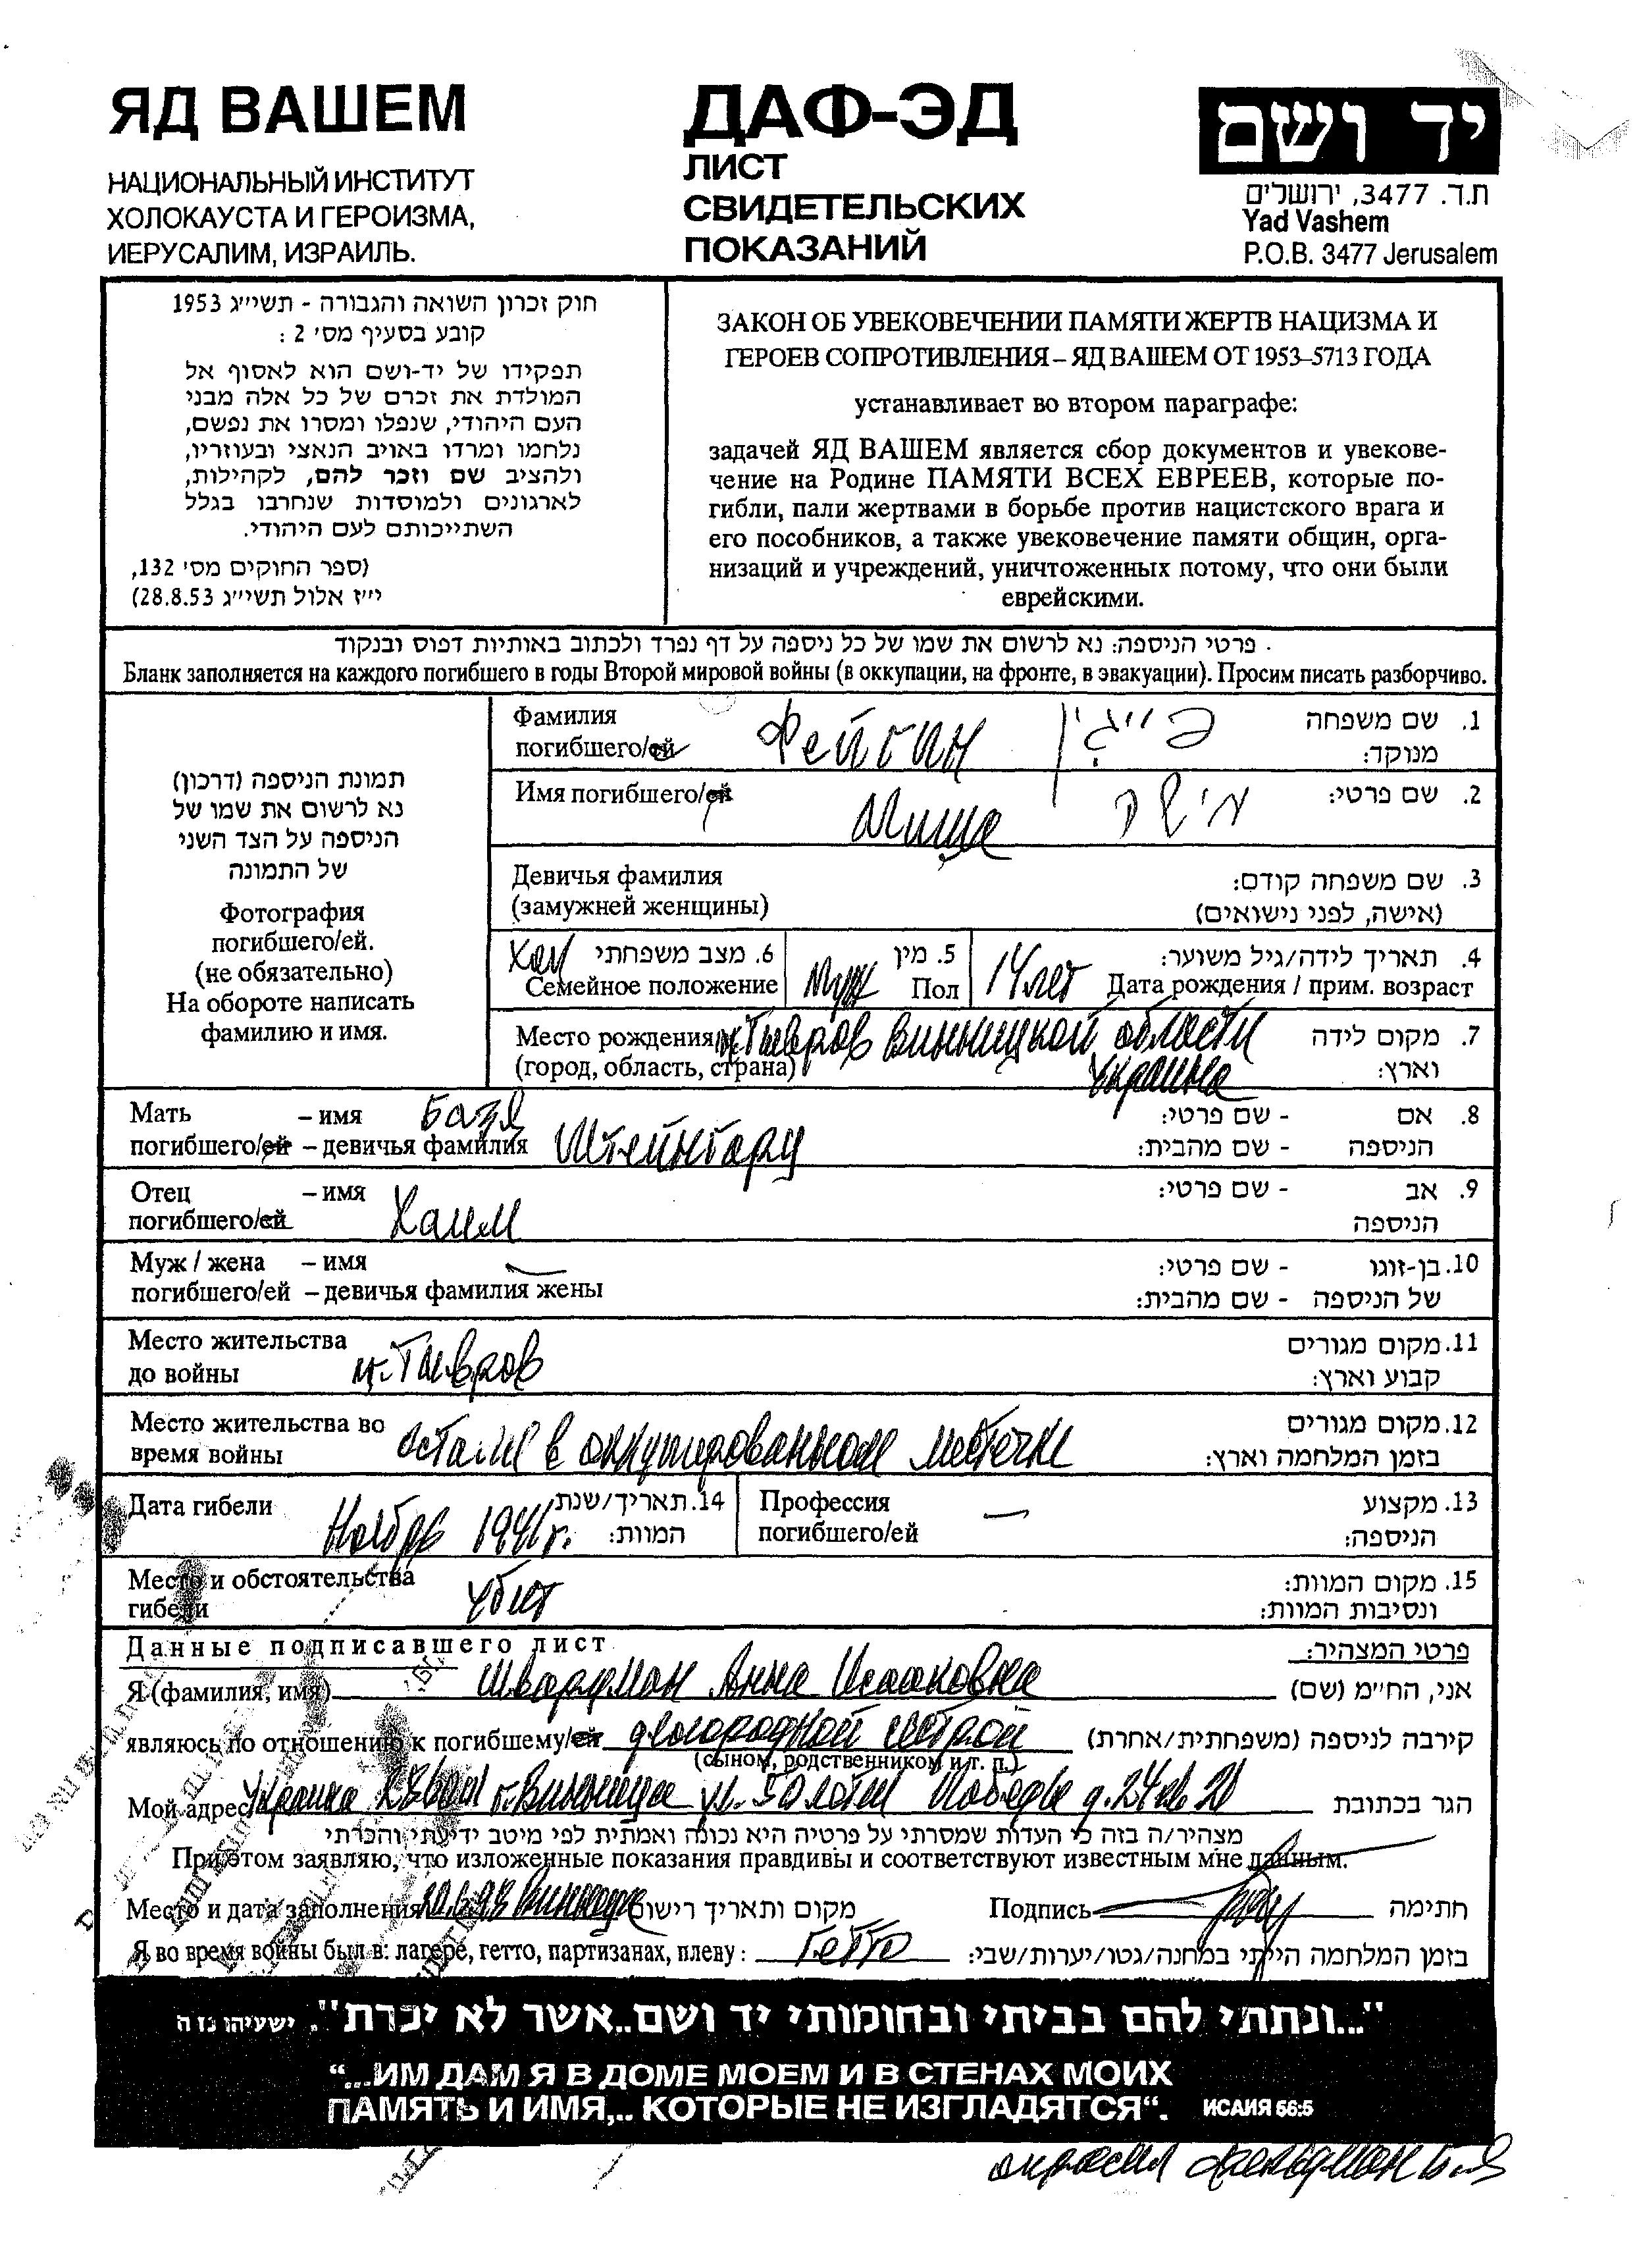 ЯД ВАШЕМ
НАЦИОНАЛЬНЫЙ ИНСТИТУТ
ХОЛОКАУСТА И ГЕРОИЗМА,
ИЕРУСАЛИМ, ИЗРАИЛЬ.
ДАФ-ЭД
ЛИСТ
СВИДЕТЕЛЬСКИХ
ПОКАЗАНИЙ
יד ושם
ת.ד. 3477, ירושלים
Yad Vashem
P.O.B. 3477 Jerusalem
חוק זכרון השואה והגבורה - תשי״ג 1953
קובע בסעיף מס׳ 2 :
תפקידו של יד-ושם הוא לאסוף אל
המולדת את זכרם של כל אלה מבני
העם היהודי, שנפלו ומסרו את נפשם,
נלחמו ומרדו באויב הנאצי ובעוזריו,
ולהציב שם וזכר להם, לקהילות,
לארגונים ולמוסדות שנחרבו בגלל
השתייכותם לעם היהודי.
(ספר החוקים מס׳ 132,
י״ז אלול תשי״ג 28.8.53)
ЗАКОН ОБ УВЕКОВЕЧЕНИИ ПАМЯТИ ЖЕРТВ НАЦИЗМА И
ГЕРОЕВ СОПРОТИВЛЕНИЯ – ЯД ВАШЕМ ОТ 1953–5713 ГОДА
устанавливает во втором параграфе:
задачей ЯД ВАШЕМ является сбор документов и увекове-
чение на Родине ПАМЯТИ ВСЕХ ЕВРЕЕВ, которые по-
гибли, пали жертвами в борьбе против нацистского врага и
его пособников, а также увековечение памяти общин, орга-
низаций и учреждений, уничтоженных потому, что они были
еврейскими.
פרטי הניספה: נא לרשום את שמו של כל ניספה על דף נפרד ולכתוב באותיות דפוס ובנקוד
Бланк заполняется на каждого погибшего в годы Второй мировой войны (в оккупации, на фронте, в эвакуации). Просим писать разборчиво.
תמונת הניספה (דרכון)
נא לרשום את שמו של
הניספה על הצד השני
של התמונה
Фотография
погибшего/ей.
(не обязательно)
На обороте написать
фамилию и имя.
Фамилия
погибшего/ей Фейгин פייגין
1. שם משפחה
מנוקד:
Имя погибшего/ей Миша מישה 2. שם פרטי:
Девичья фамилия
(замужней женщины)
3. שם משפחה קודם:
(אישה, לפני נישואים)
Хол 6. מצב משפחתי
Семейное положение
5. מין
Муж Пол
4. תאריך לידה/גיל משוער:
14 лет Дата рождения / прим. возраст
Место рождения м. Тывров Винницкой области
(город, область, страна) Украина
7. מקום לידה
וארץ:
Мать – имя Базя
погибшего/ей – девичья фамилия Штейнгард
8. אם - שם פרטי:
הניספה - שם מהבית:
Отец – имя
погибшего/ей Хаим
9. אב - שם פרטי:
הניספה
Муж / жена – имя —
погибшего/ей – девичья фамилия жены
10. בן-זוגו - שם פרטי:
של הניספה - שם מהבית:
Место жительства
до войны м. Тывров
11. מקום מגורים
קבוע וארץ:
Место жительства во
время войны остался в оккупированном местечке
12. מקום מגורים
בזמן המלחמה וארץ:
Дата гибели Ноябрь 1941г.
14. תאריך/שנת
המוות:
Профессия
погибшего/ей —
13. מקצוע
הניספה:
Место и обстоятельства
гибели убит
15. מקום המוות:
ונסיבות המוות:
Данные подписавшего лист פרטי המצהיר:
Я (фамилия, имя) Шварцман Анна Исааковна אני, החי״מ (שם)
являюсь по отношению к погибшему/ей двоюродной сестрой קירבה לניספה (משפחתית/אחרת)
(сыном, родственником и т. п.)
Мой адрес Украина г. Винница ул. Победы д. 24 кв. הגר בכתובת
מצהיר/ה בזה כי העדות שמסרתי על פרטיה היא נכונה ואמתית לפי מיטב ידיעתי והכרתי
При этом заявляю, что изложенные показания правдивы и соответствуют известным мне данным.
Место и дата заполнения Винница מקום ותאריך רישום Подпись חתימה
Я во время войны был в: лагере, гетто, партизанах, плену: гетто בזמן המלחמה הייתי במחנה/גטו/יערות/שבי:
״...ונתתי להם בביתי ובחומותי יד ושם..אשר לא יכרת״. ישעיהו נז ה
“...ИМ ДАМ Я В ДОМЕ МОЕМ И В СТЕНАХ МОИХ
ПАМЯТЬ И ИМЯ,.. КОТОРЫЕ НЕ ИЗГЛАДЯТСЯ“. ИСАИЯ 56:5
опросил Фельдман